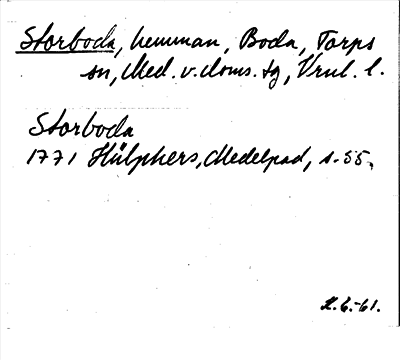 Storboda, hemman, Boda, Torps
sn, Med. v. doms. tg, Vrnl. l.
Storboda
1771 Hülphers, Medelpad, s. 55.
2.6.-61.